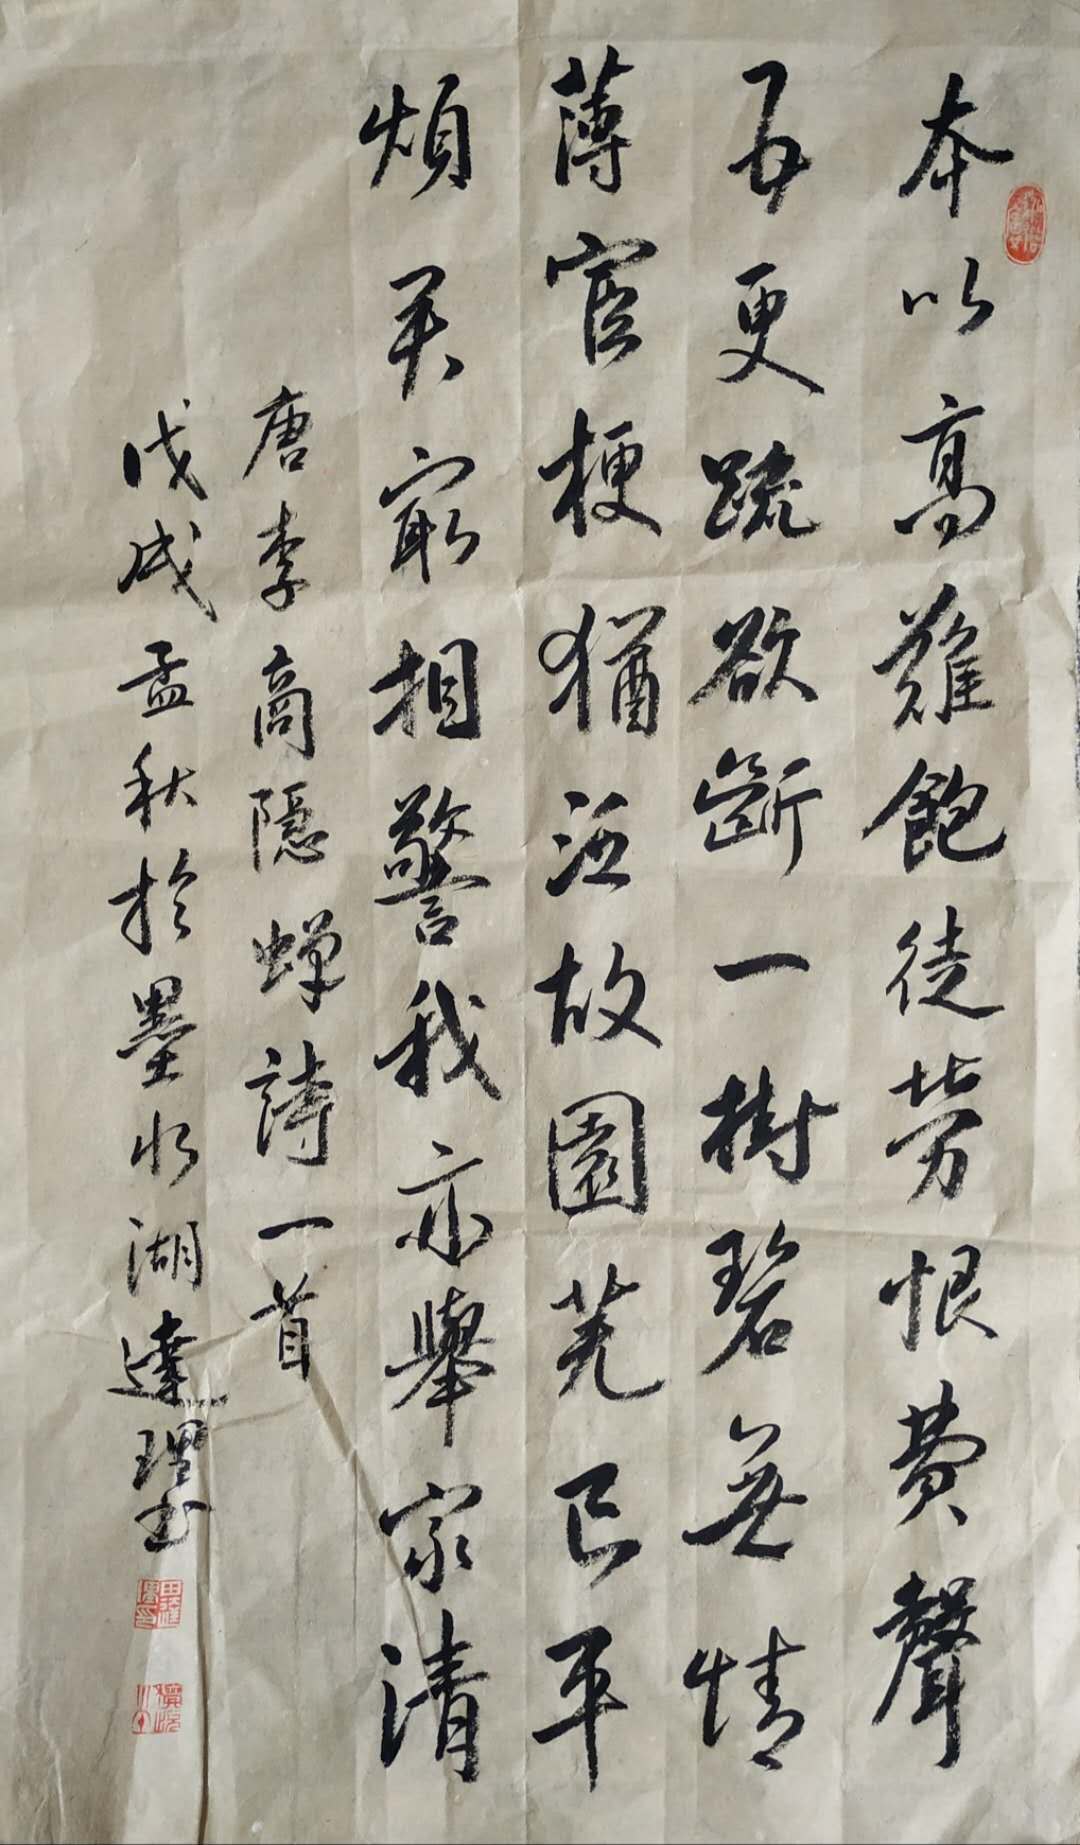 本以高難飽徒勞恨費聲
五更疏欲斷一樹碧無情
薄宦梗猶泛故園芜已平
煩君最相警我亦舉家清
唐李商隐蝉詩一首
戊戌孟秋於墨水湖達理书